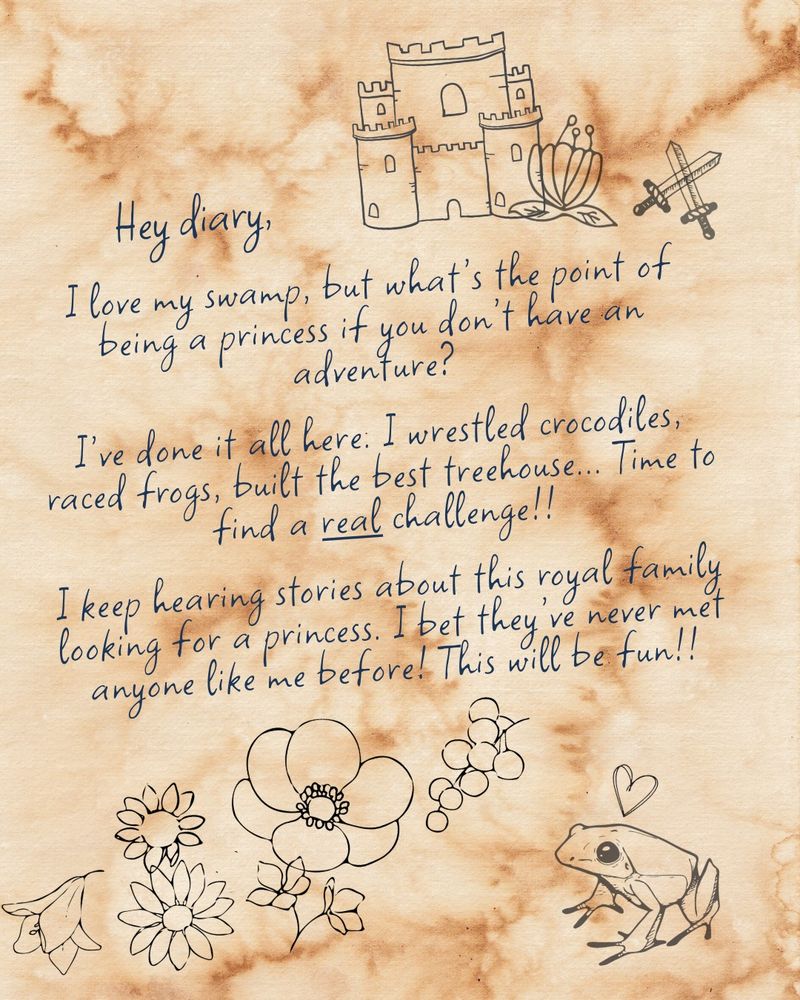 Hey diary,
I love my swamp, but what's the point of
being a princess if you don't have an
adventure?
I've done it all here: I wrestled crocodiles,
raced frogs, built the best treehouse... Time to
find a real challenge!!
I keep hearing stories about this royal family
looking for a princess. I bet they've never met
anyone like me before! This will be fun!!